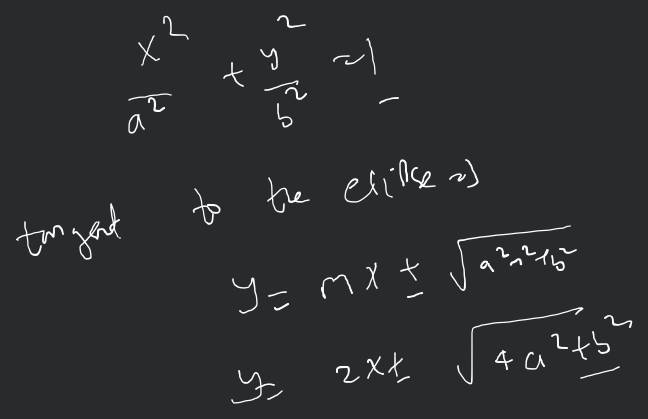 x²/a² + y²/b² = 1
tangent to the ellipse ⇒
y = mx ± √(a²m²+b²)
y = 2x ± √(4a²+b²)